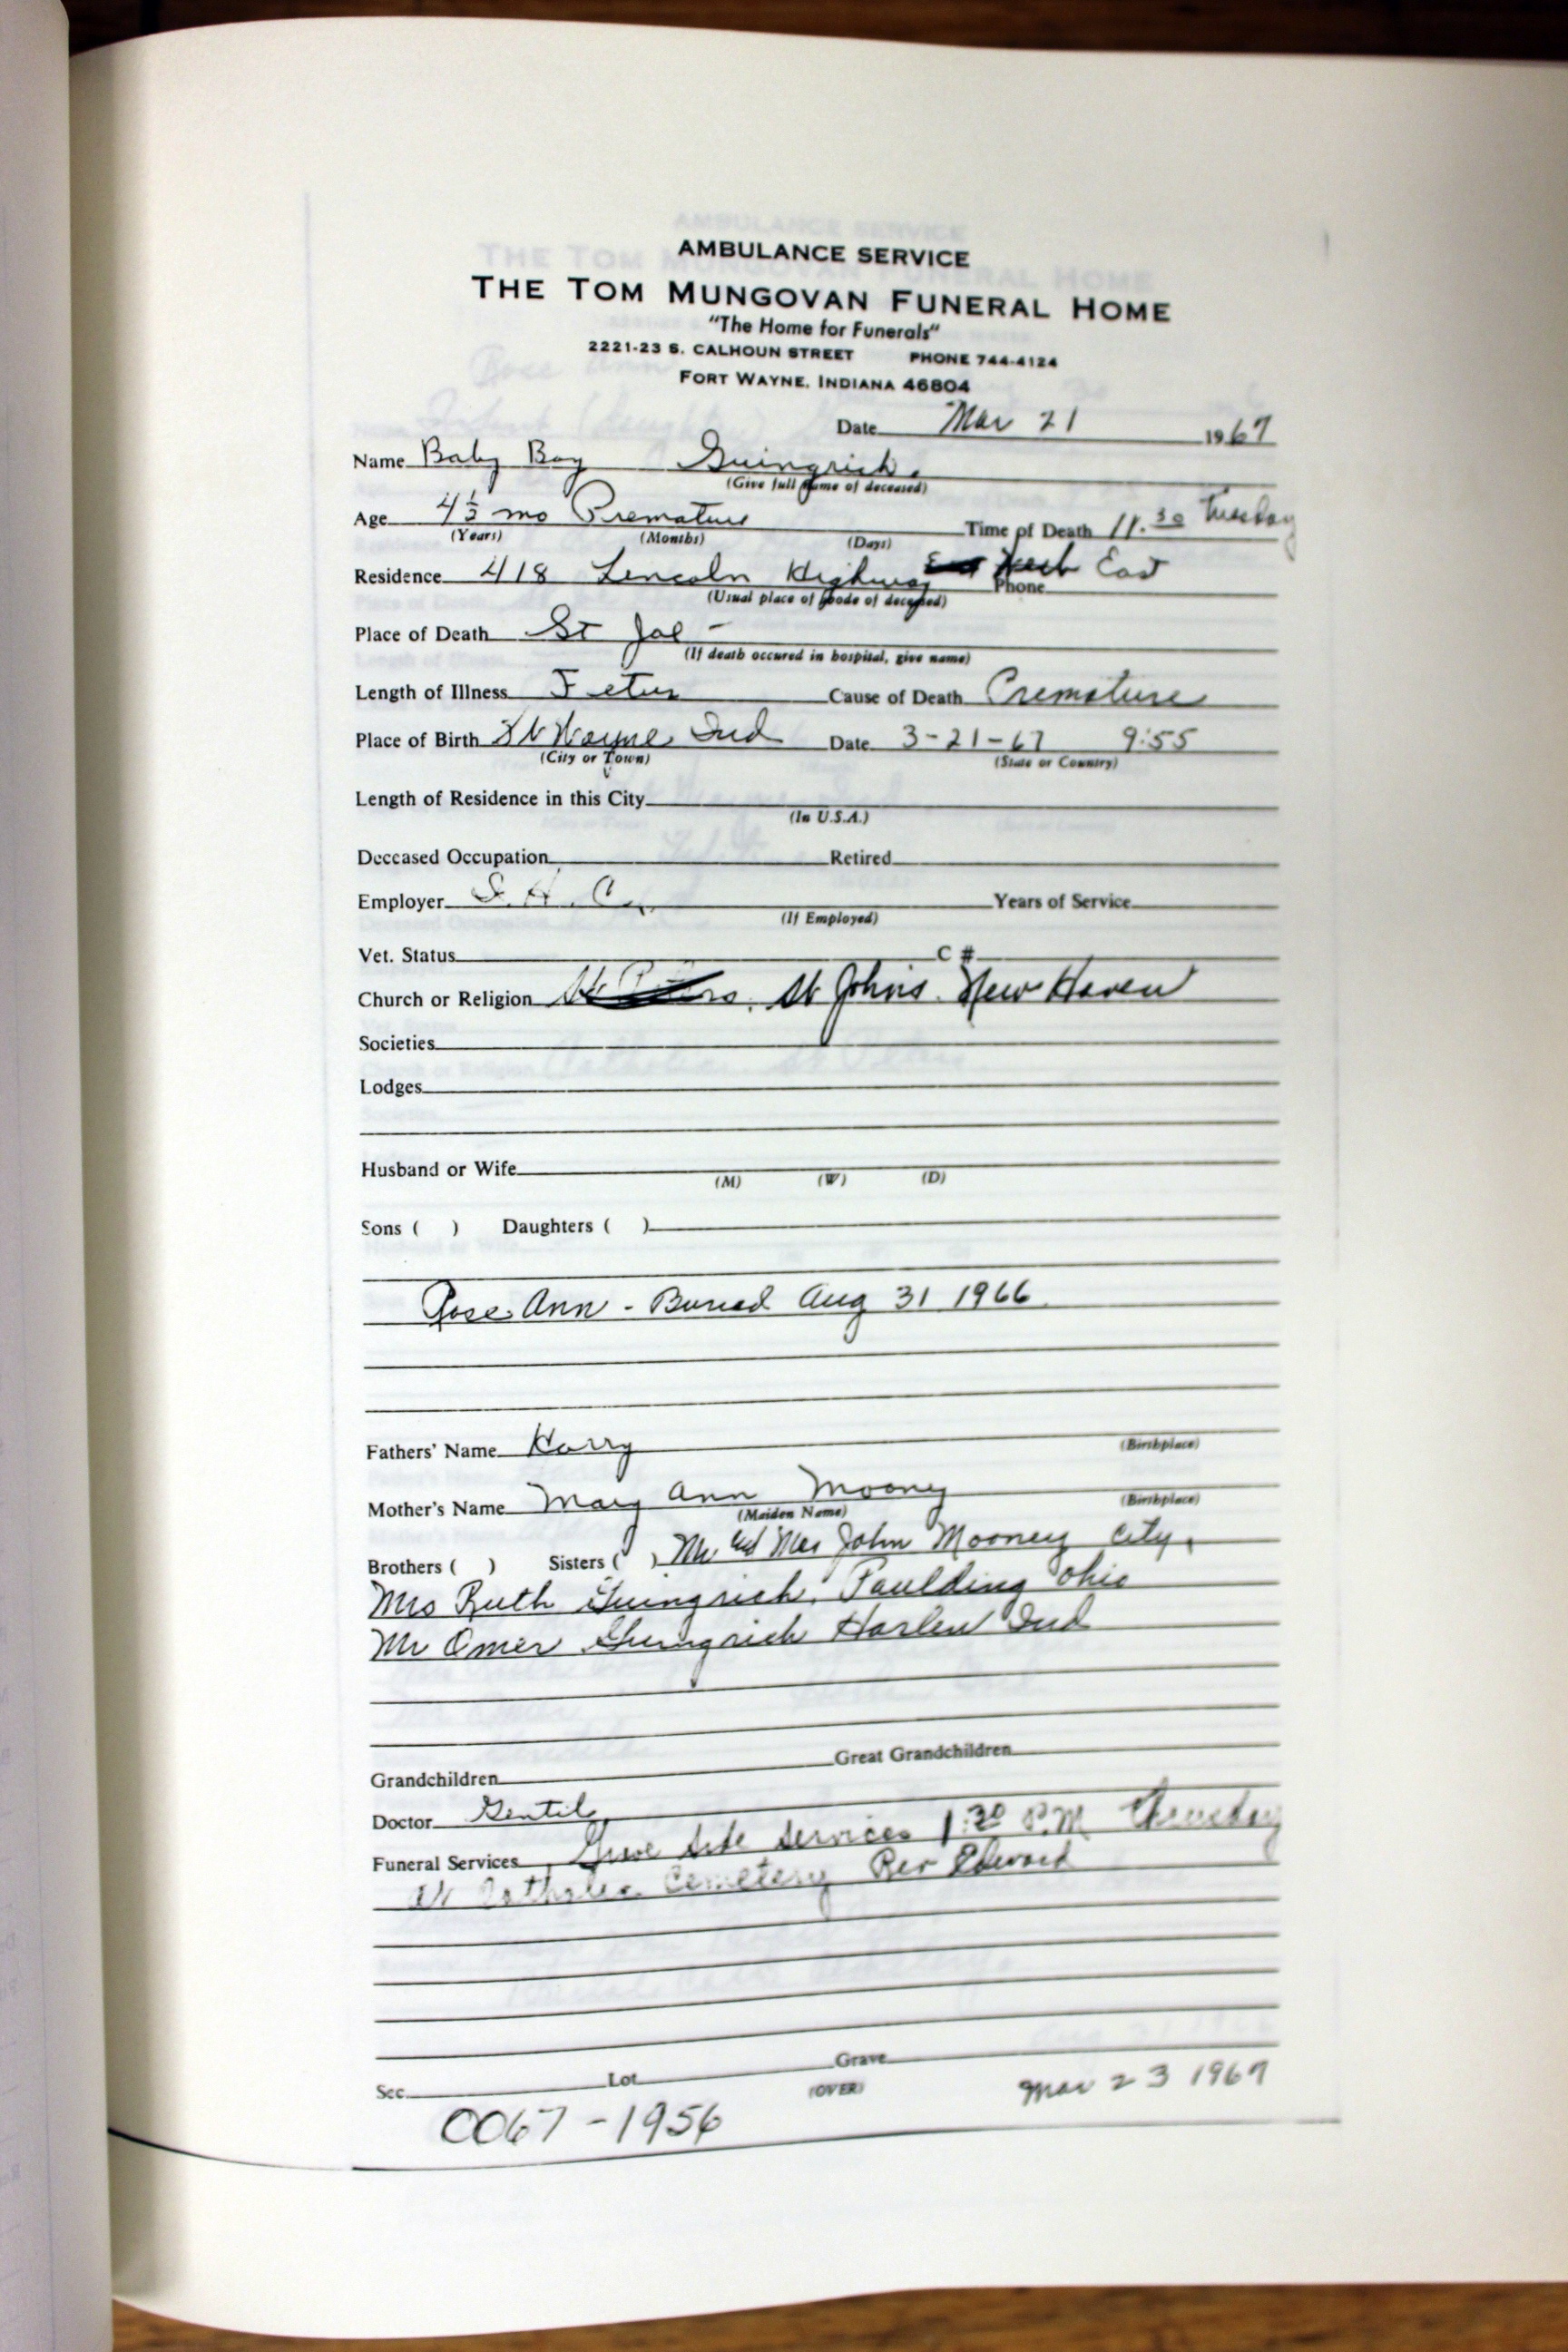 AMBULANCE SERVICE
THE TOM MUNGOVAN FUNERAL HOME
"The Home for Funerals"
2221-23 S. CALHOUN STREET PHONE 744-4124
FORT WAYNE, INDIANA 46804
Date Mar 21 1967
Name Baby Boy Guingrich.
(Give full name of deceased)
Age 4½ mo Premature Time of Death 11.30 Tuesday
(Years) (Months) (Days)
Residence 418 Lincoln Highway East
(Usual place of abode of deceased) Phone
Place of Death St Joe -
(If death occured in hospital, give name)
Length of Illness Fetus Cause of Death Premature
Place of Birth Ft Wayne, Ind Date 3-21-67 9:55
(City or Town) (State or Country)
Length of Residence in this City
(In U.S.A.)
Deceased Occupation Retired
Employer Years of Service
(If Employed)
Vet. Status C #
Church or Religion St Johns. New Haven
Societies
Lodges
Husband or Wife
(M) (W) (D)
Sons ( ) Daughters ( )
Rose Ann - Buried Aug 31 1966.
Fathers' Name Harry
(Birthplace)
Mother's Name Mary Ann Mooney
(Maiden Name) (Birthplace)
Brothers ( ) Sisters ( ) Mr and Mrs John Mooney City,
Mrs Ruth Guingrich, Paulding Ohio
Mr Omer Guingrich Harlen Ind
Grandchildren Great Grandchildren
Doctor Gentile
Funeral Services Grave side services 1:30 P.M Thursday
at Catholic Cemetery Rev
Sec. Lot Grave
(OVER) Mar 23 1967
0067-1956